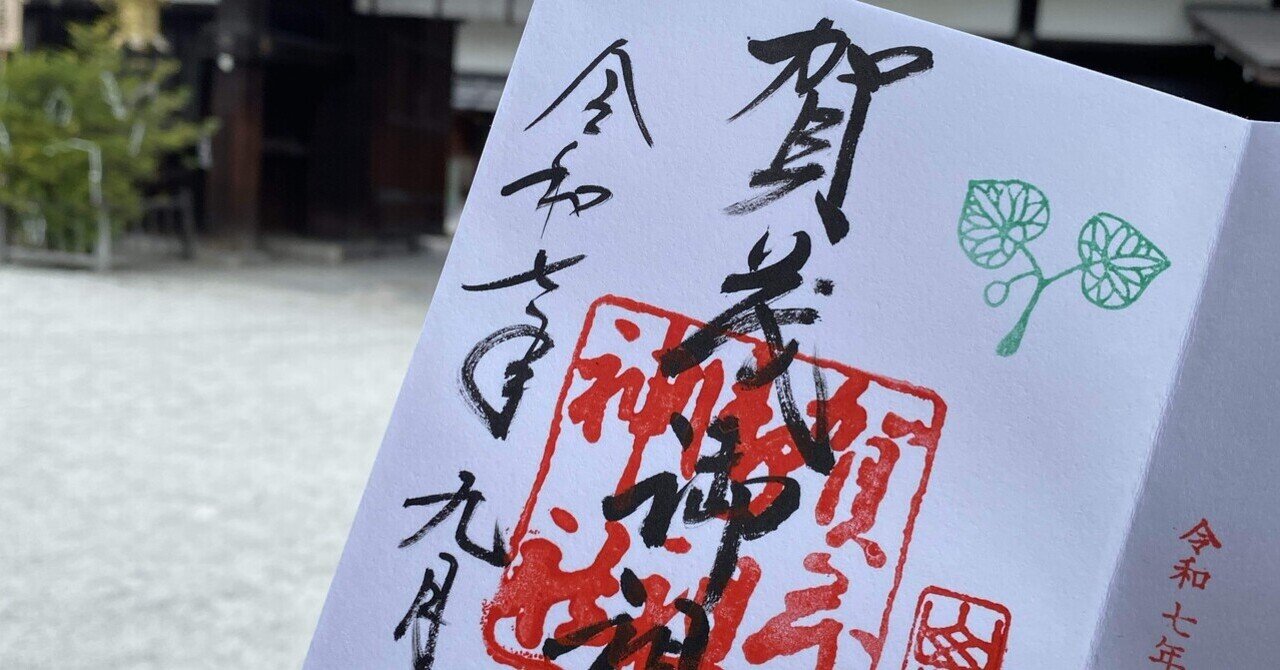 賀茂御祖
令和七年
九月
令和七年